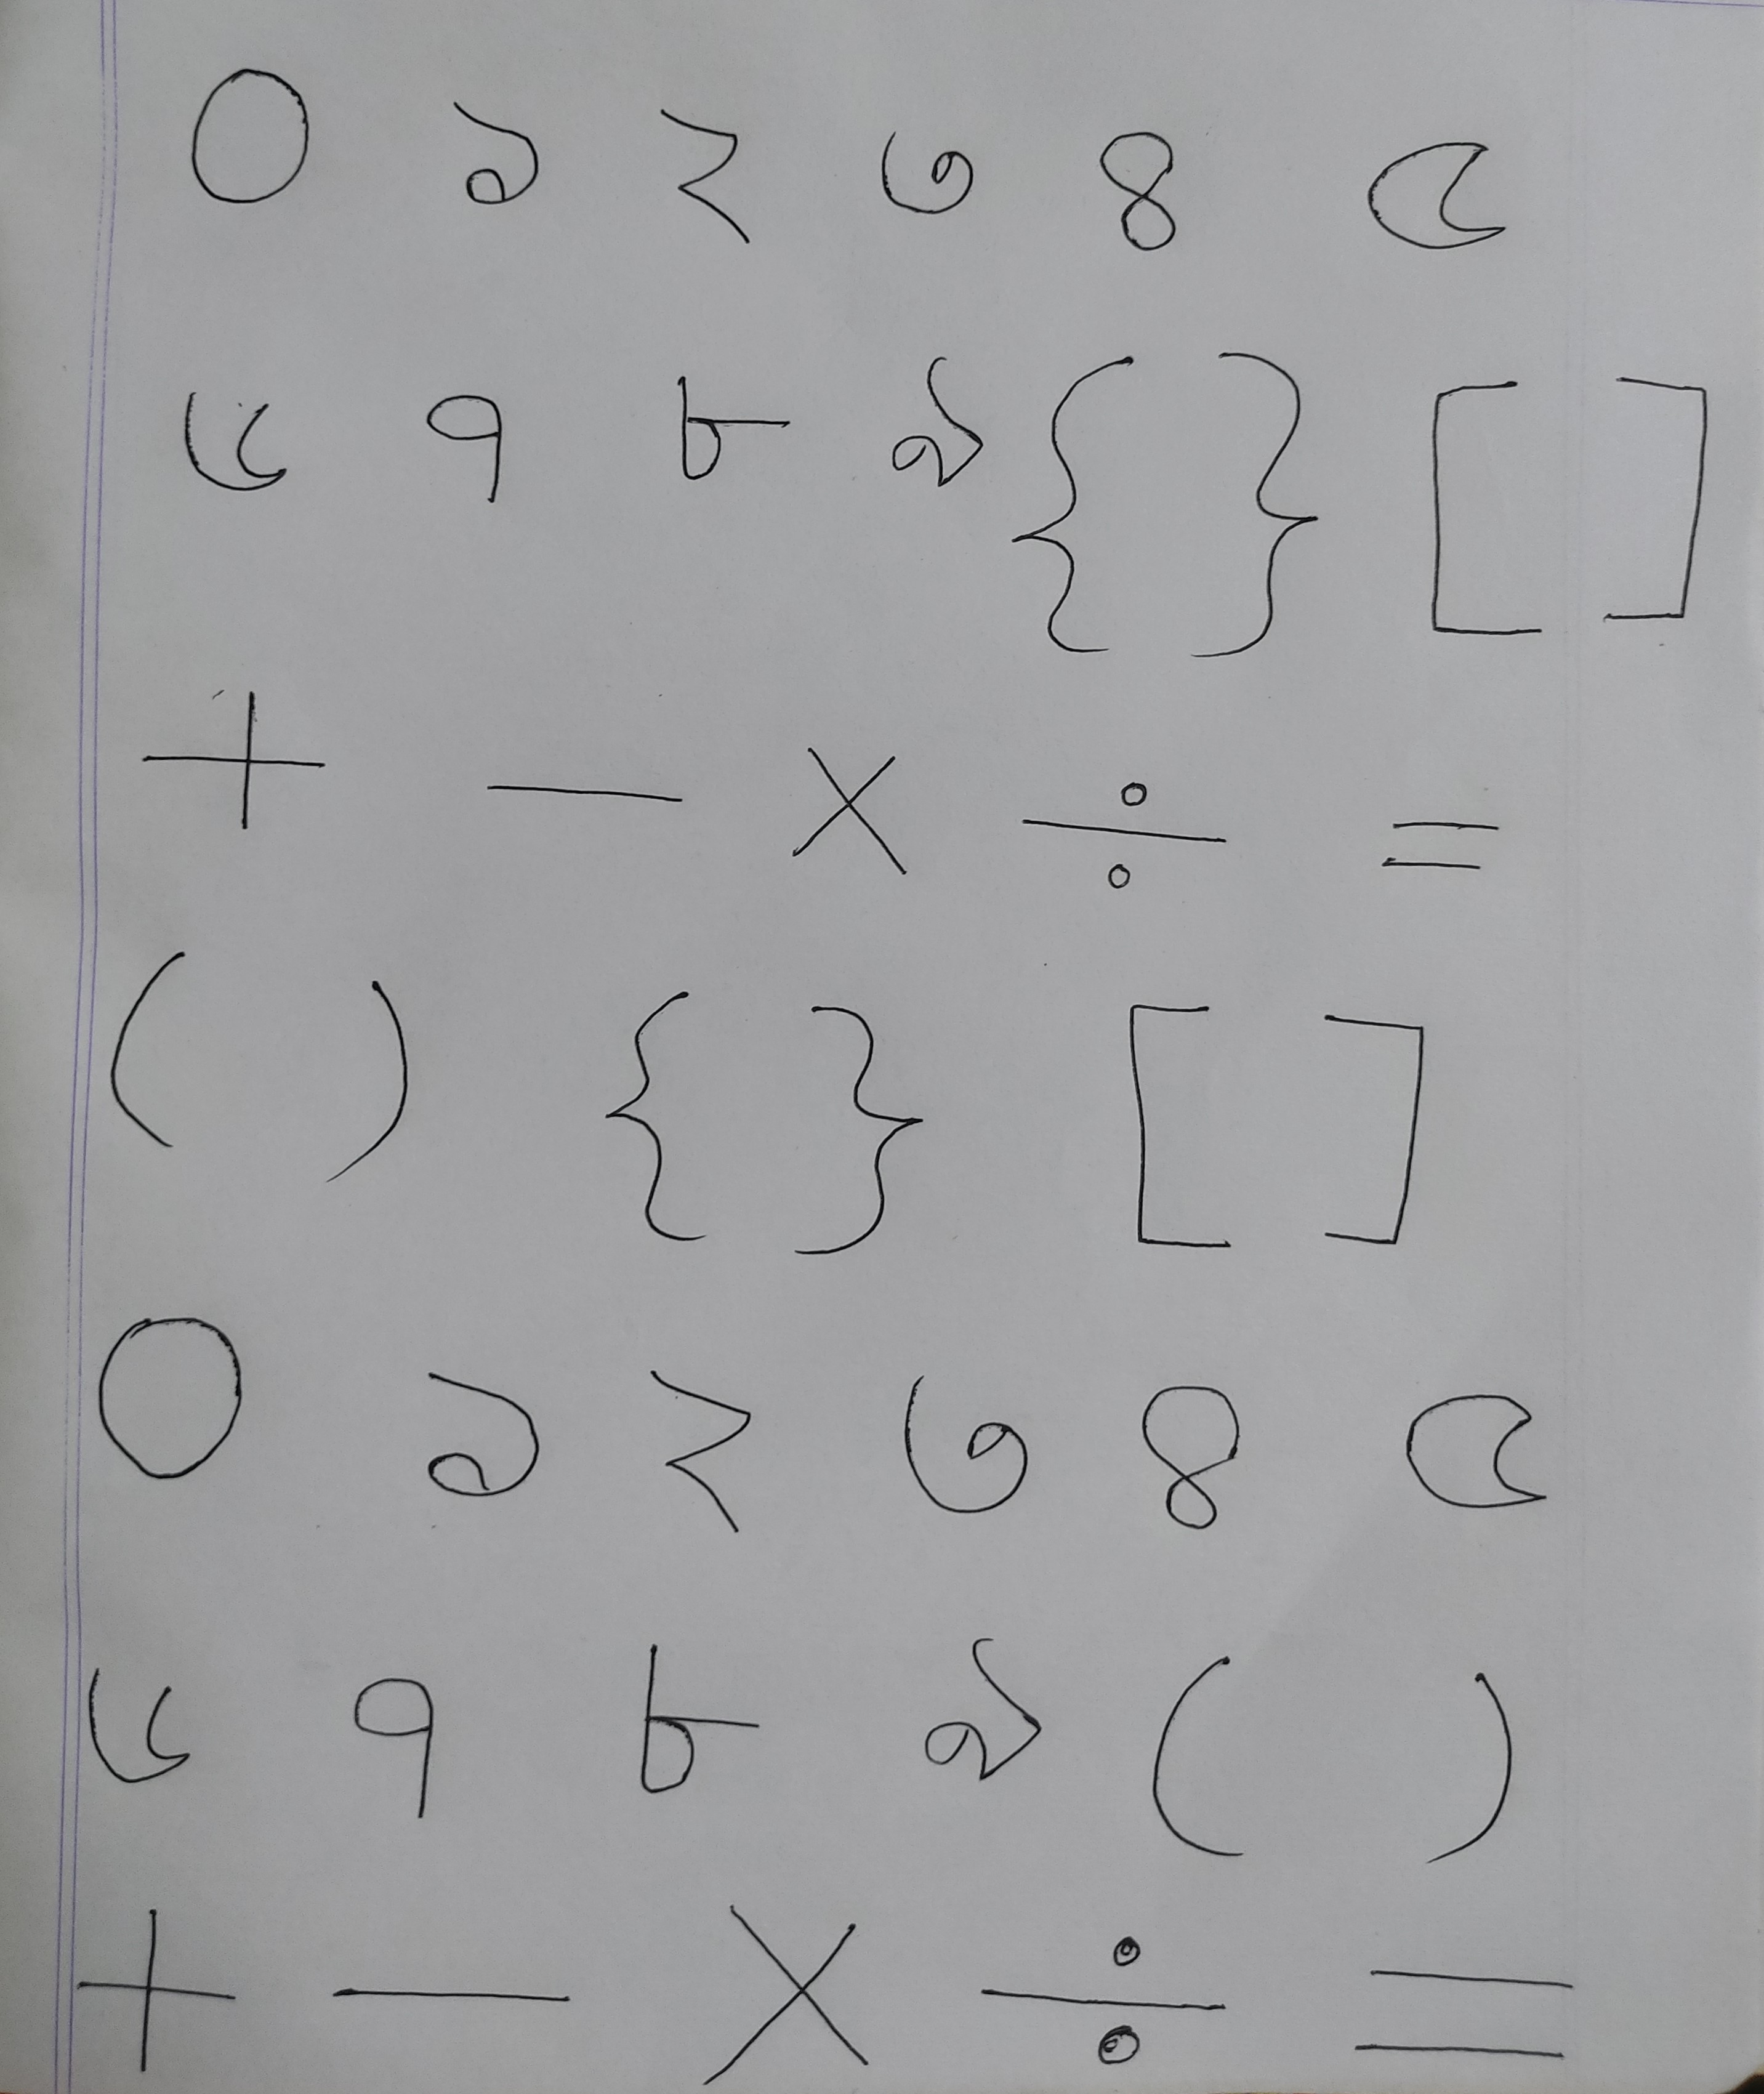 ০ ১ ২ ৩ ৪ ৫
৬ ৭ ৮ ৯ { } [ ]
+ − × ÷ =
( ) { } [ ]
০ ১ ২ ৩ ৪ ৫
৬ ৭ ৮ ৯ ( )
+ − × ÷ =